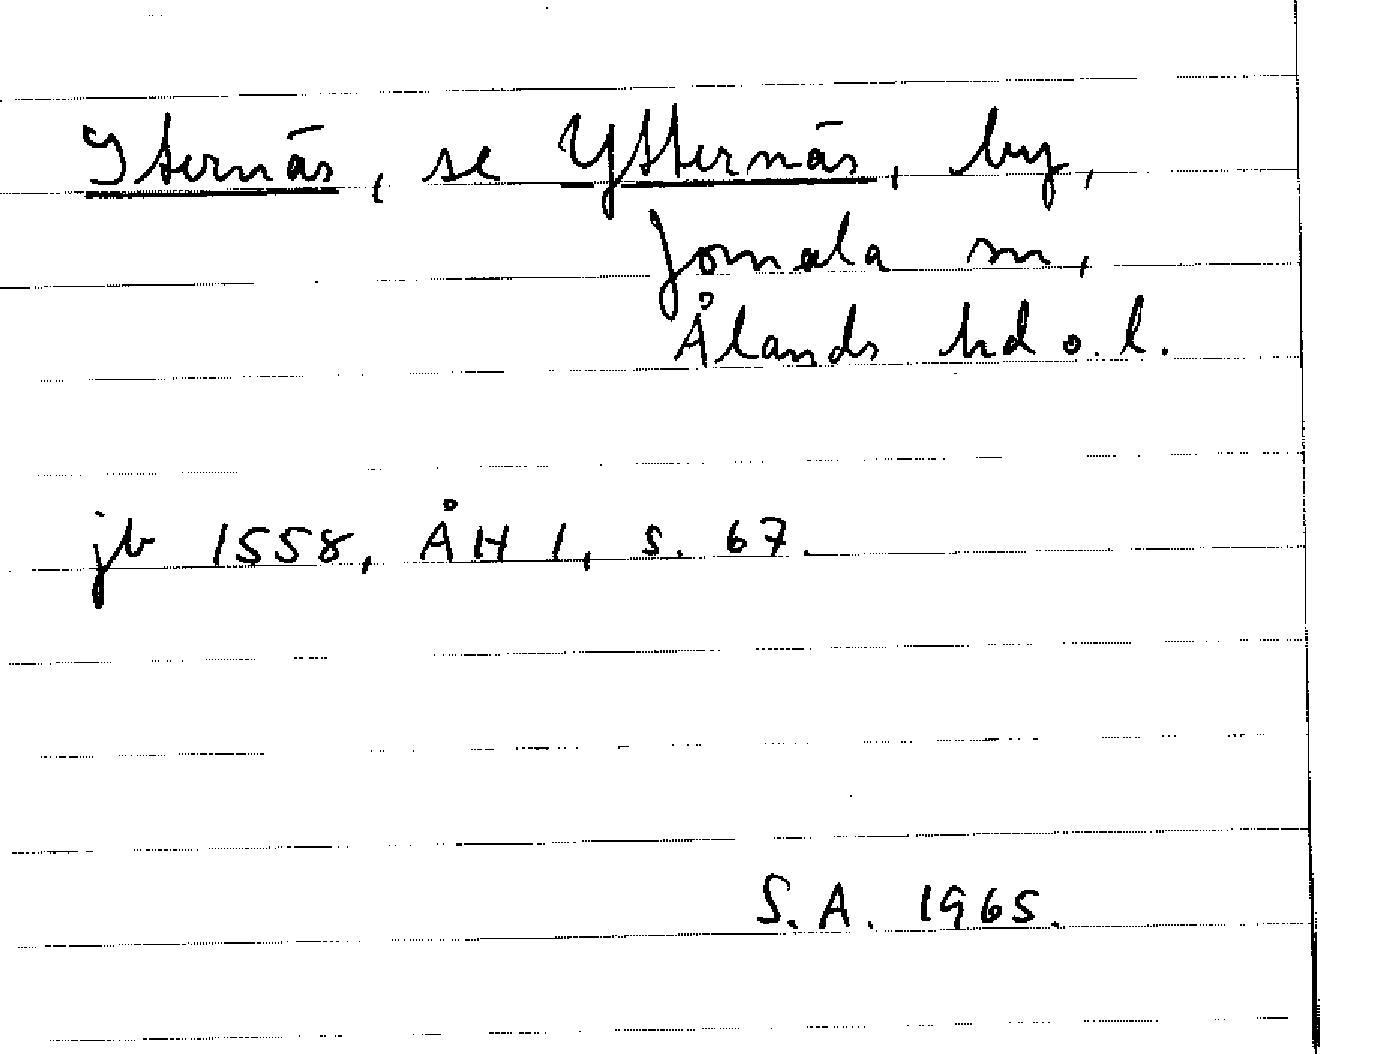 Iternäs, se Ytternäs, by,
Jomala sn,
Ålands hd o. l.
jb 1558, ÅH 1, s. 67.
S. A. 1965.